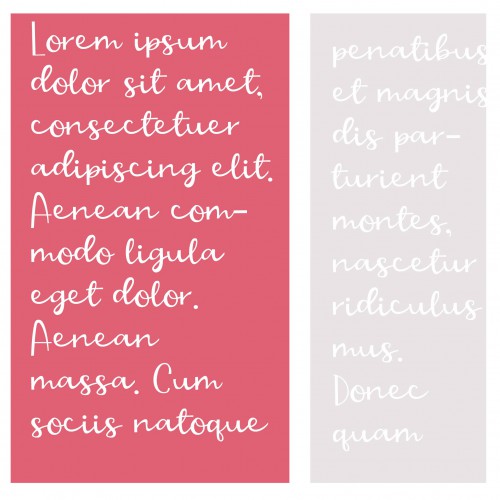 Lorem ipsum
dolor sit amet,
consectetuer
adipiscing elit.
Aenean com-
modo ligula
eget dolor.
Aenean
massa. Cum
sociis natoque
penatibus
et magnis
dis par-
turient
montes,
nascetur
ridiculus
mus.
Donec
quam